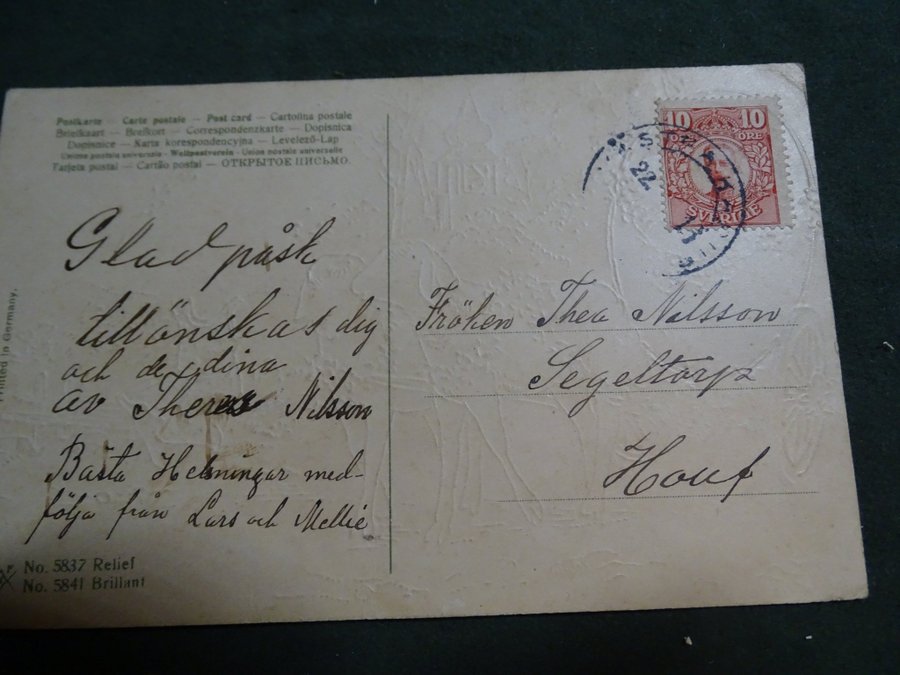 Postkarte — Carte postale — Post card — Cartolina postale
Briefkaart — Brefkort — Correspondenzkarte — Dopisnica
Dopisnice — Karta korespondencyjna — Levelező-Lap
Unione postale universale — Weltpostverein — Union postale universelle
Tarjeta postal — Cartão postal — ОТКРЫТОЕ ПИСЬМО.
Glad påsk
tillönskas dig
och de dina
av Theres Nilsson
Bästa Helsningar med-
följa från Lars och Mellie
No. 5837 Relief
No. 5841 Brillant
Printed in Germany.
10 10
ÖRE
SVERIGE
22
Fröken Thea Nilsson
Segeltorp